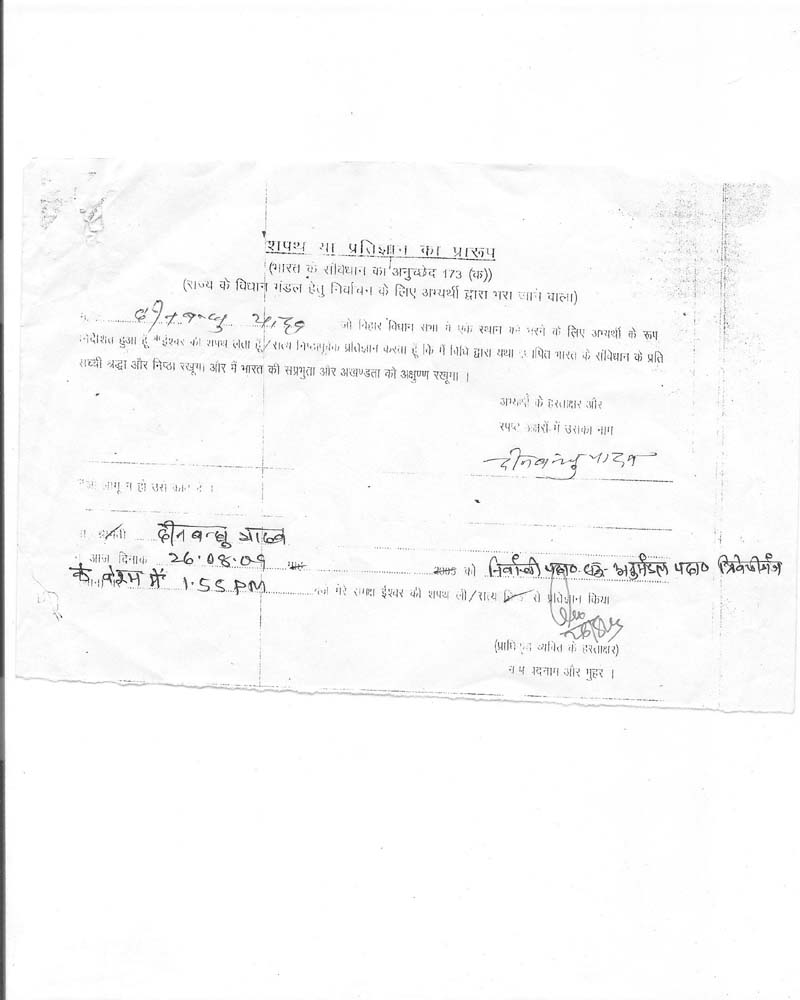 शपथ या प्रतिज्ञान का प्रारूप
(भारत के संविधान का अनुच्छेद 173 (क))
(राज्य के विधान मंडल हेतु निर्वाचन के लिए अभ्यर्थी द्वारा भरा जाने वाला)
दीनबन्धु यादव जो बिहार विधान सभा में एक स्थान को भरने के लिए अभ्यर्थी के रूप
निर्देशित हुआ हूँ *ईश्वर की शपथ लेता हूँ/सत्य निष्ठापूर्वक प्रतिज्ञान करता हूँ कि मैं विधि द्वारा यथा स्थापित भारत के संविधान के प्रति
सच्ची श्रद्धा और निष्ठा रखूगा और मैं भारत की सप्रभुता और अखण्डता को अक्षुण्ण रखूगा ।
अभ्यर्थी के हस्ताक्षर और
स्पष्ट अक्षरों में उसका नाम
दीनबन्धु यादव
जो लागू न हो उसे काट दें ।
दीनबन्धु यादव
आज दिनांक 26.08.09 2005 को निर्वाची पदा० सह- अनुमंडल पदा० त्रिवेणीगंज
के वेश्म में 1.55 PM बजे मेरे समक्ष ईश्वर की शपथ ली/सत्य से प्रतिज्ञान किया
(प्राधिकृत व्यक्ति के हस्ताक्षर)
पदनाम और मुहर ।